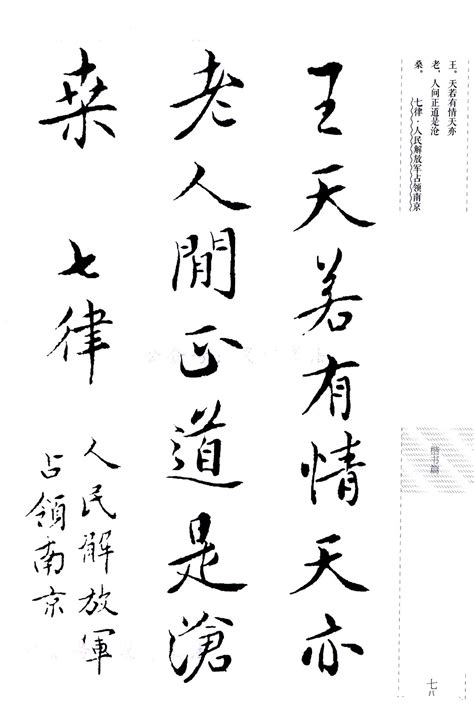 王。天若有情天亦
老，人间正道是沧
桑。 七律·人民解放军占领南京
王天若有情天亦
老人間正道是滄
桑 七律
人民解放軍
占領南京
楷书篇
七八